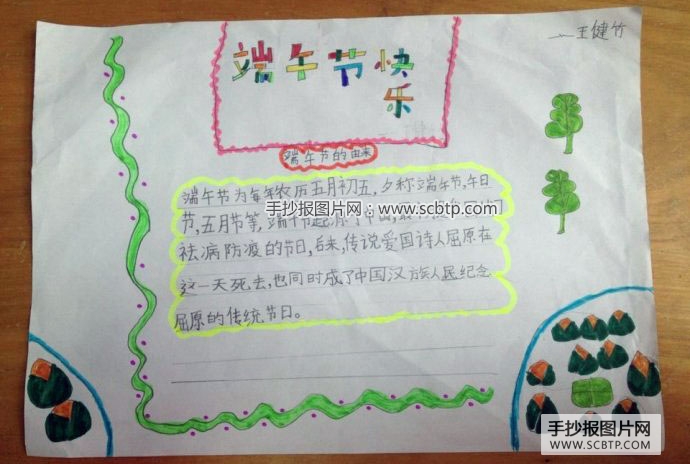 王健竹
端午节快
乐
端午节的由来
端午节为每年农历五月初五,夕称端午节,午日
节,五月节等,端午节起源于中国最初
手抄报图片网:www.scbtp.com
祛病防渡的节日,后来,传说爱国诗人屈原在
这一天死去,也同时成了中国汉族人民纪念
屈原的传统节日。
手抄报图片网
WWW.SCBTP.COM